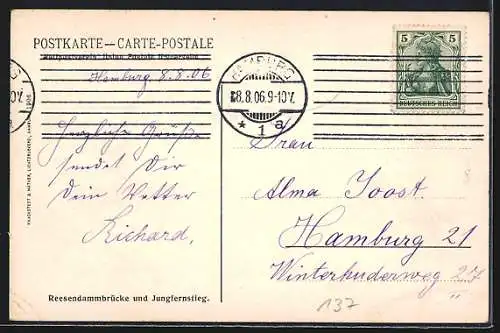 POSTKARTE — CARTE-POSTALE
Hamburg 8.8.06
HAMBURG
8.8.06.9-10V.
* 1 a
5 5
DEUTSCHES REICH
Herzliche Grüße
sendet Dir
Dein Vetter
Richard.
Frau
Alma Joost.
Hamburg 21
Winterhuderweg 27
Reesendammbrücke und Jungfernstieg.
137